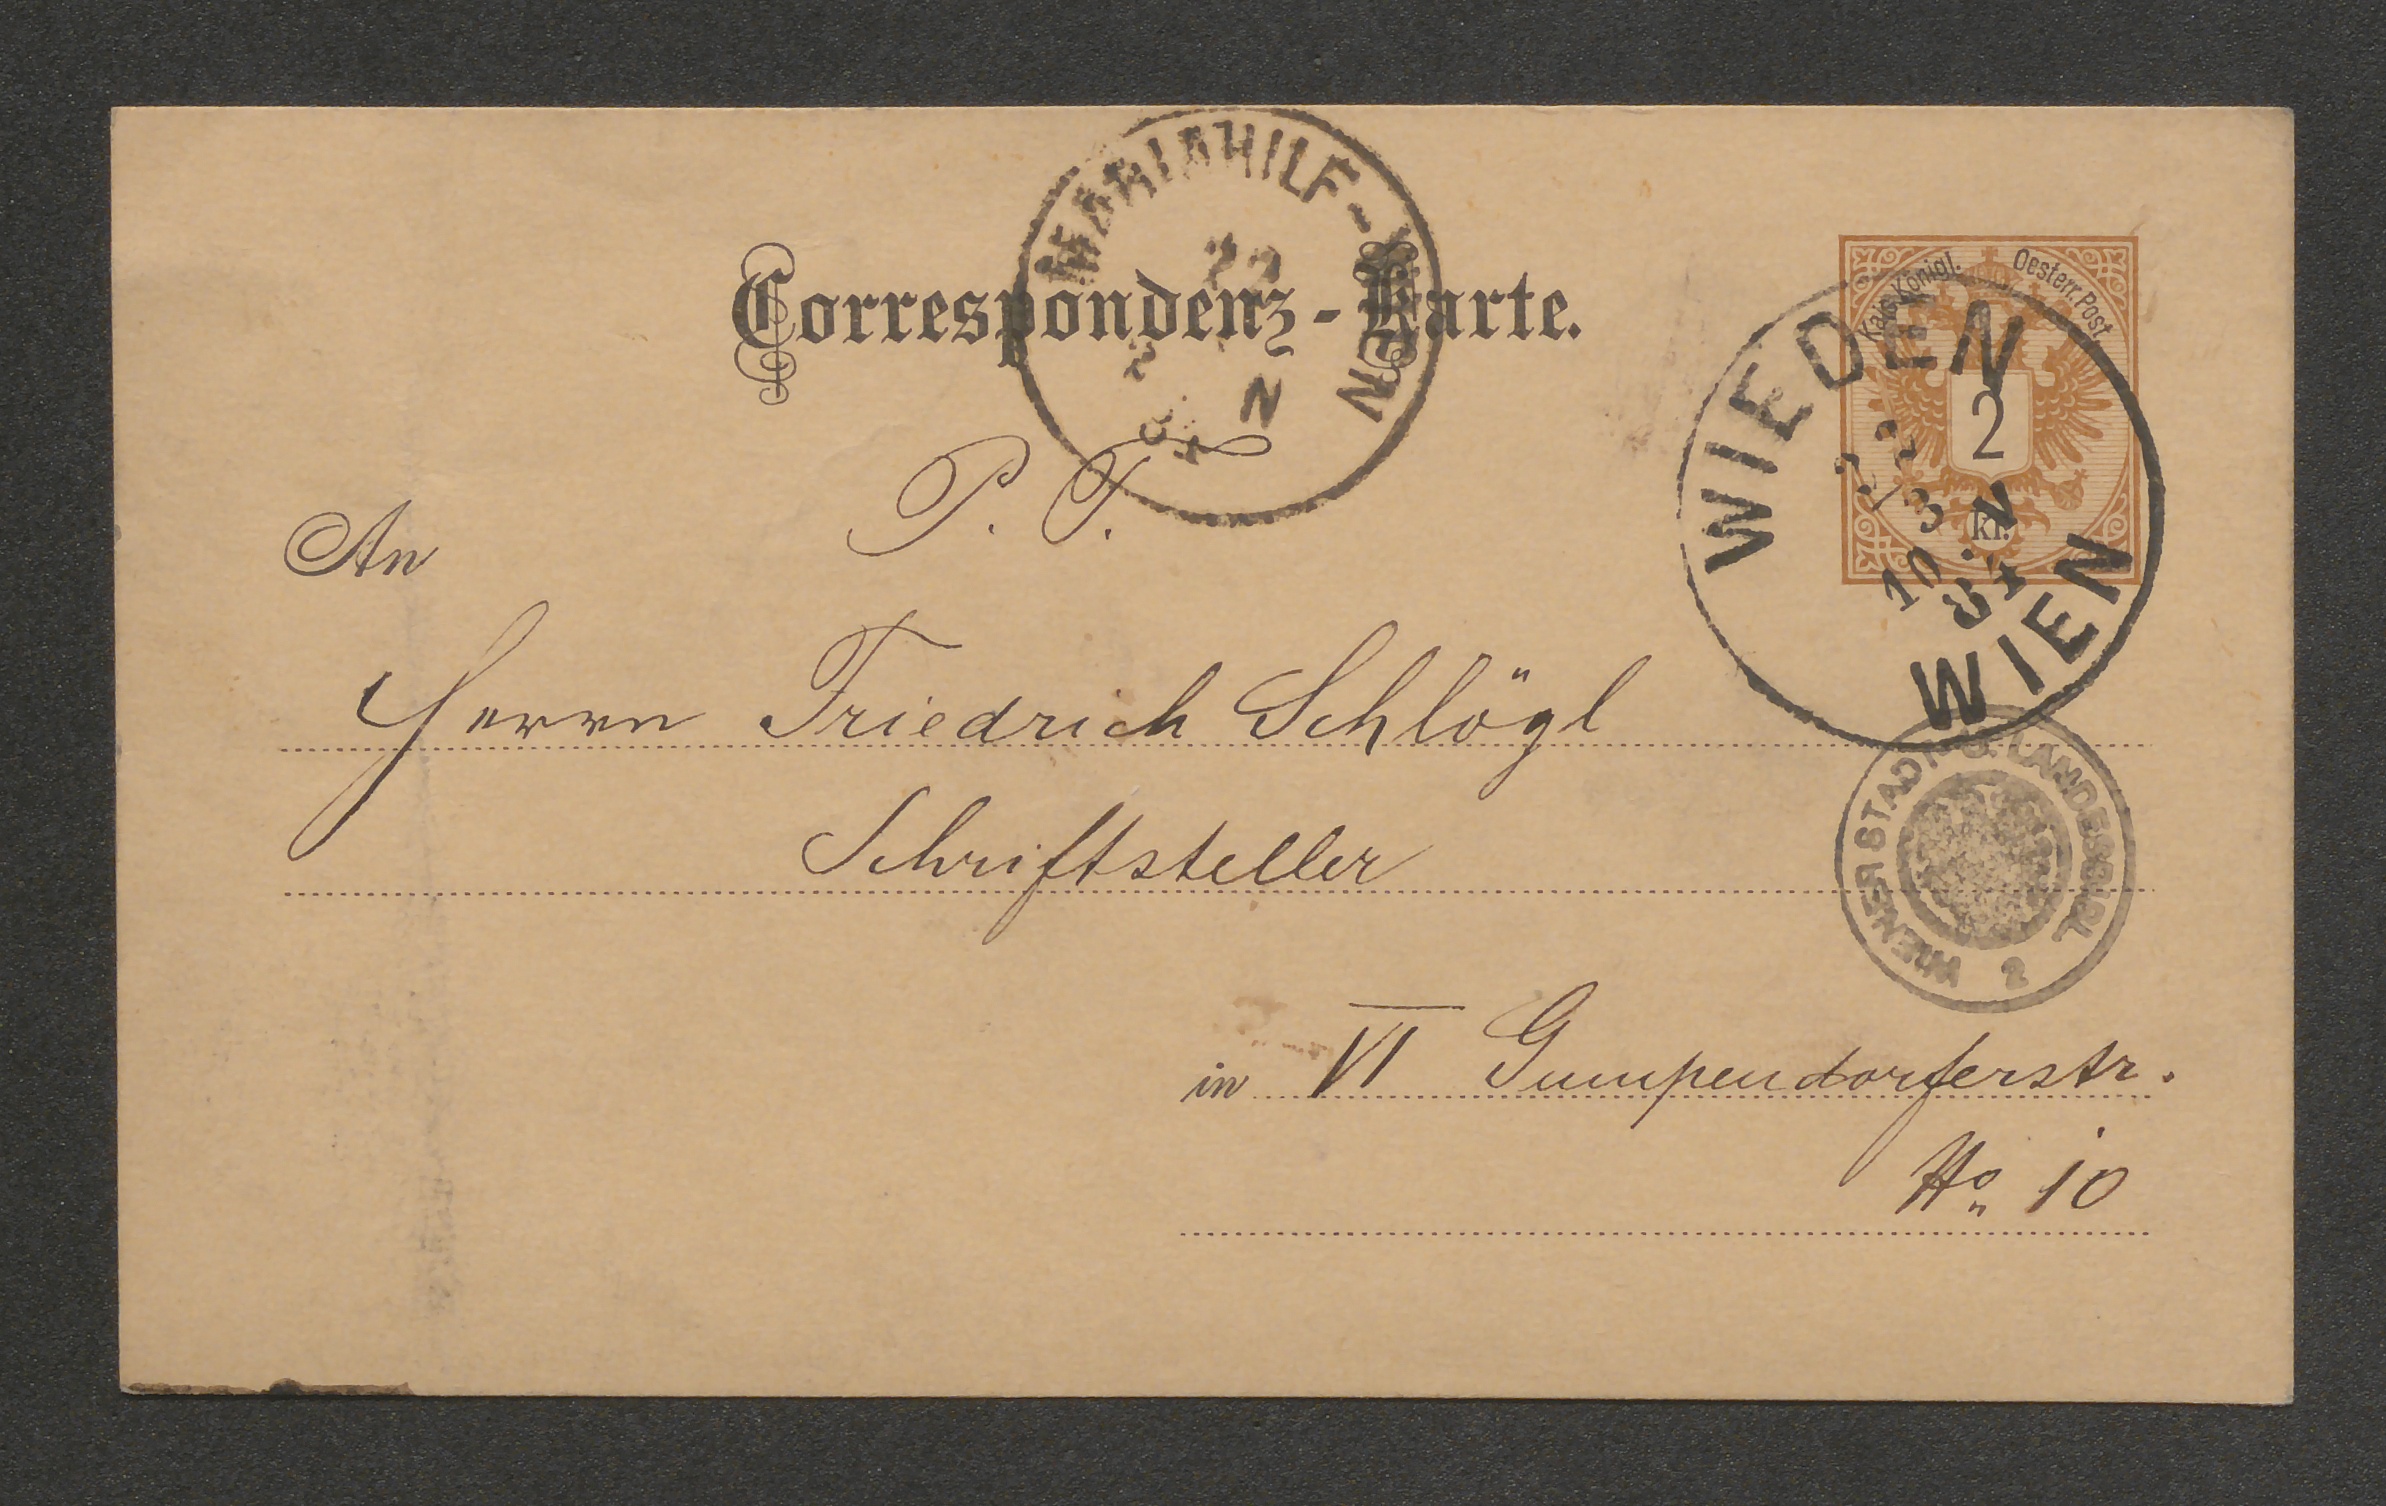 MARIAHILF-WIEN
22
N
Correspondenz-Karte.
Kais. Königl. Oesterr. Post
2
kr.
WIEDEN
22
3
10 V
84
WIEN
An
P. T.
Herrn Friedrich Schlögl
Schriftsteller
WIENER STADT- U. LANDESBIBL.
2
in VI Gumpendorferstr.
No 10